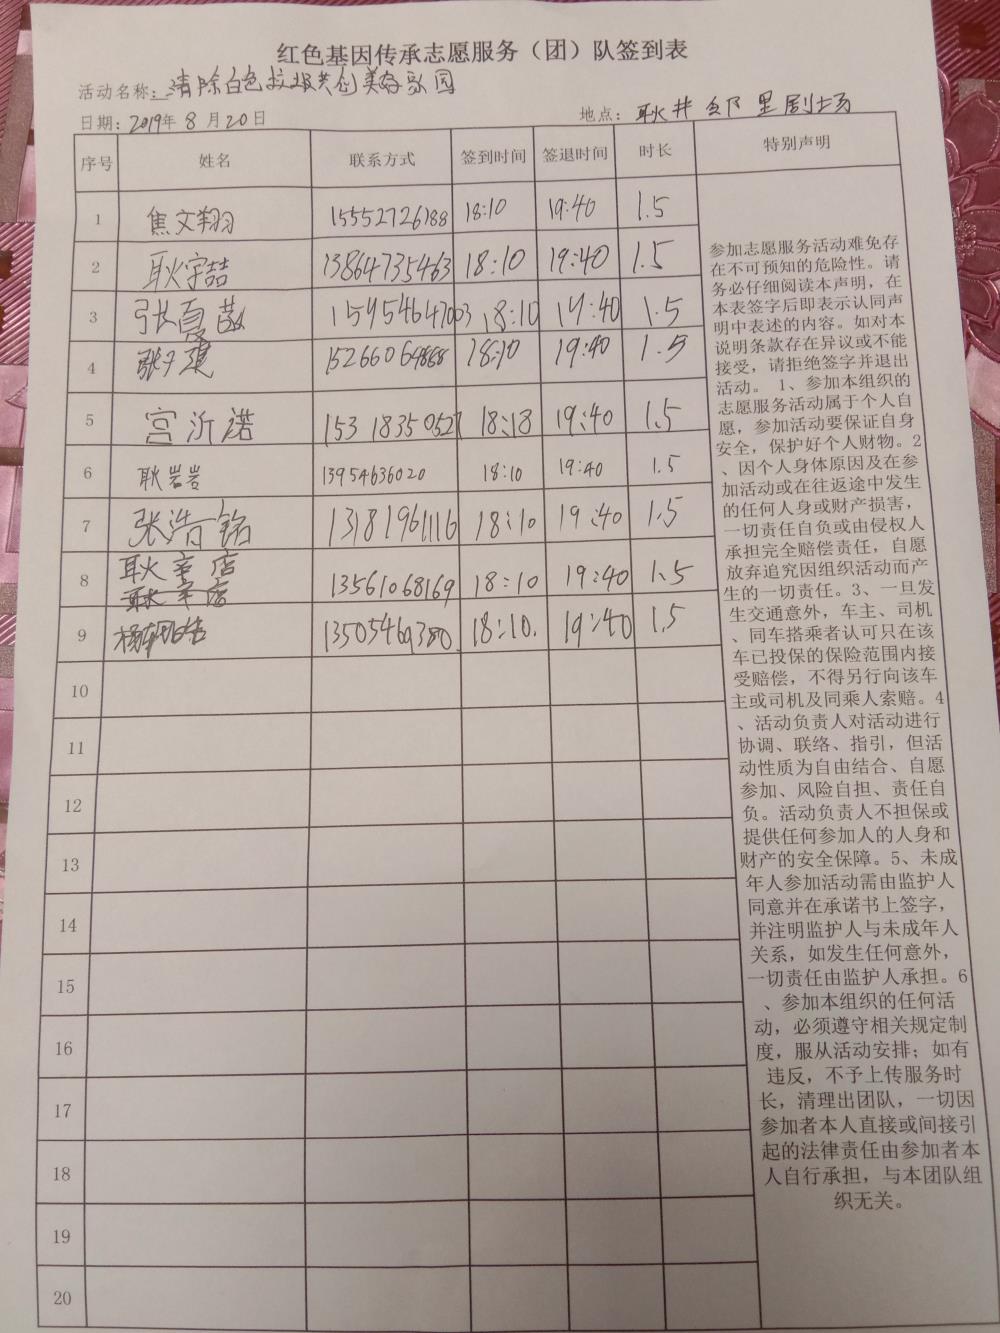 红色基因传承志愿服务（团）队签到表
活动名称：清除白色垃圾共创美好家园
日期：2019年8月20日 地点：耿井 邻里剧场
序号 姓名 联系方式 签到时间 签退时间 时长 特别声明
1 焦文翔 15552726188 18:10 19:40 1.5
2 耿宇喆 13864735463 18:10 19:40 1.5
3 张夏 15954647003 18:10 19:40 1.5
4 张子琪 15266064868 18:10 19:40 1.5
5 宫沂诺 15318350527 18:18 19:40 1.5
6 耿岩岩 13954636020 18:10 19:40 1.5
7 张浩铭 13181961116 18:10 19:40 1.5
8 耿辛店 13561068169 18:10 19:40 1.5
耿辛店
9 13505469380 18:10. 19:40 1.5
10
11
12
13
14
15
16
17
18
19
20
参加志愿服务活动难免存
在不可预知的危险性。请
务必仔细阅读本声明，在
本表签字后即表示认同声
明中表述的内容。如对本
说明条款存在异议或不能
接受，请拒绝签字并退出
活动。 1、参加本组织的
志愿服务活动属于个人自
愿，参加活动要保证自身
安全，保护好个人财物。2
、因个人身体原因及在参
加活动或在往返途中发生
的任何人身或财产损害，
一切责任自负或由侵权人
承担完全赔偿责任，自愿
放弃追究因组织活动而产
生的一切责任。3、一旦发
生交通意外，车主、司机
、同车搭乘者认可只在该
车已投保的保险范围内接
受赔偿，不得另行向该车
主或司机及同乘人索赔。4
、活动负责人对活动进行
协调、联络、指引，但活
动性质为自由结合、自愿
参加、风险自担、责任自
负。活动负责人不担保或
提供任何参加人的人身和
财产的安全保障。5、未成
年人参加活动需由监护人
同意并在承诺书上签字，
并注明监护人与未成年人
关系，如发生任何意外，
一切责任由监护人承担。6
、参加本组织的任何活
动，必须遵守相关规定制
度，服从活动安排；如有
违反，不予上传服务时
长，清理出团队，一切因
参加者本人直接或间接引
起的法律责任由参加者本
人自行承担，与本团队组
织无关。